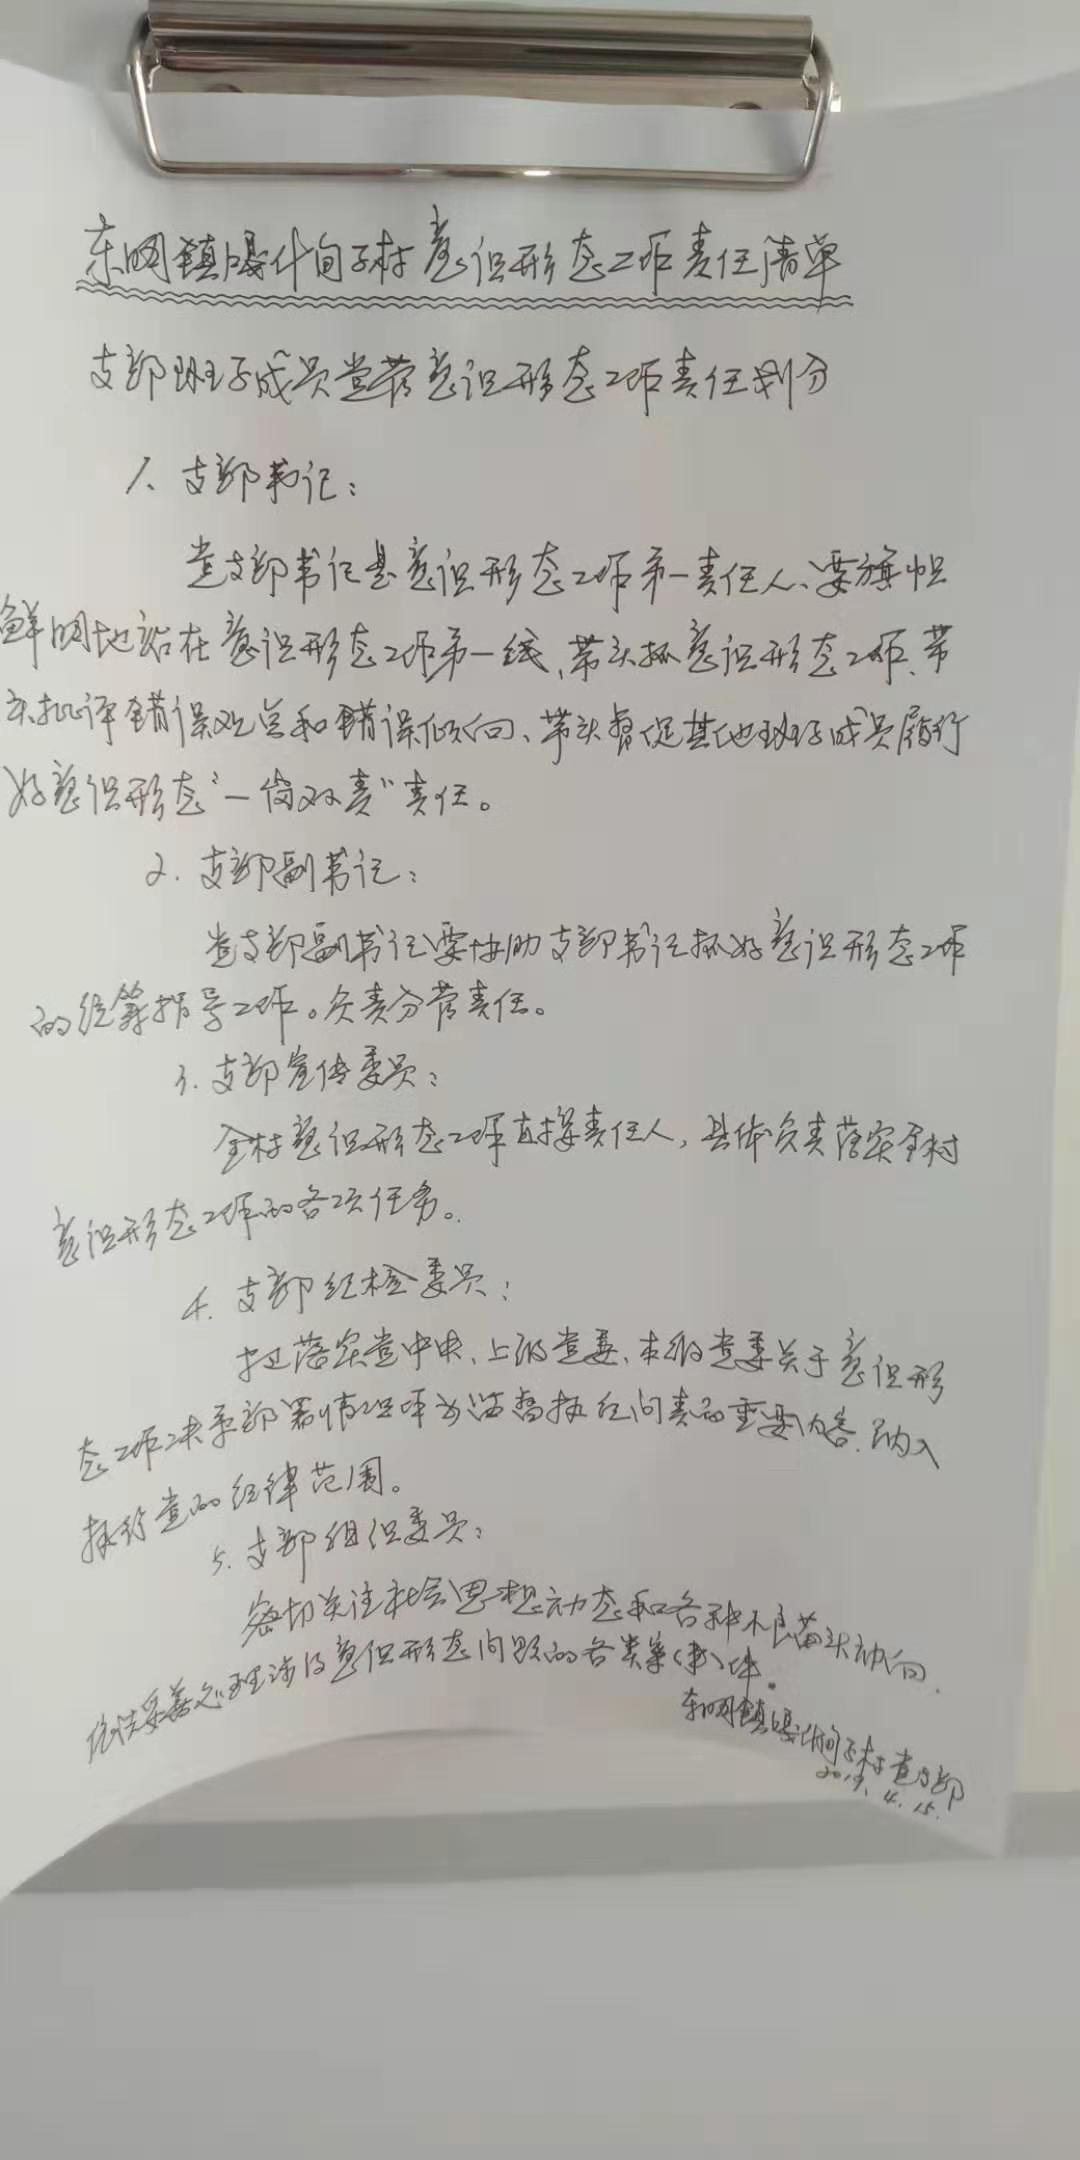 东网镇喂什自子村意识形态工作责任清单
支部班子成员党管意识形态工作责任划分
1、支部书记：
党支部书记是意识形态工作第一责任人、要旗帜
鲜明地站在意识形态工作第一线、带头抓意识形态工作、带
头批评错误观点和错误倾向、带头督促其他班子成员履行
好意识形态“一岗双责”责任。
2. 支部副书记：
党支部副书记要协助支部书记抓好意识形态工作
的统筹指导工作。负责分管责任。
3. 支部宣传委员：
全村意识形态工作直接责任人，具体负责落实全村
意识形态工作的各项任务。
4. 支部纪检委员：
把落实党中央、上级党委、本级党委关于意识形
态工作决策部署情况作为监督执纪问责的重要内容、纳入
执行党的纪律范围。
5. 支部组织委员：
密切关注社会思想动态和各种不良苗头动向、
依法妥善处理涉及意识形态问题的各类案（事）件。
东网镇村党支部
2019.4.15.